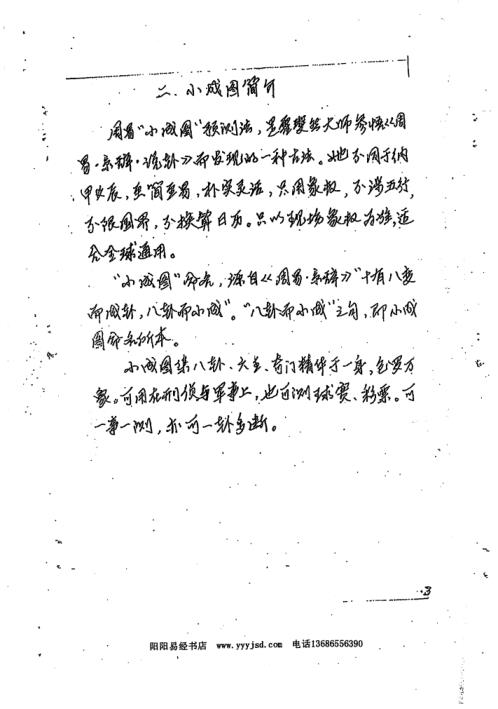 二、小成图简介
周易“小成图”预测法，是霍斐然大师参悟《周
易·系辞·说卦》而发现的一种古法。她不同于纳
甲六辰，至简至易，朴实灵活，只用象数，不涉五行，
不限国界，不换算日历。只以现场象数为准，适
合全球通用。
“小成图”命名，源自《周易·系辞》“十有八变
而成卦，八卦而小成”。“八卦而小成”之句，即小成
图命名所本。
小成图集八卦、大玄、奇门精华于一身，包罗万
象。可用在刑侦与军事上，也可测球赛、彩票。可
一事一测，亦可一卦多断。
3
阳阳易经书店 www.yyyjsd.com 电话13686556390